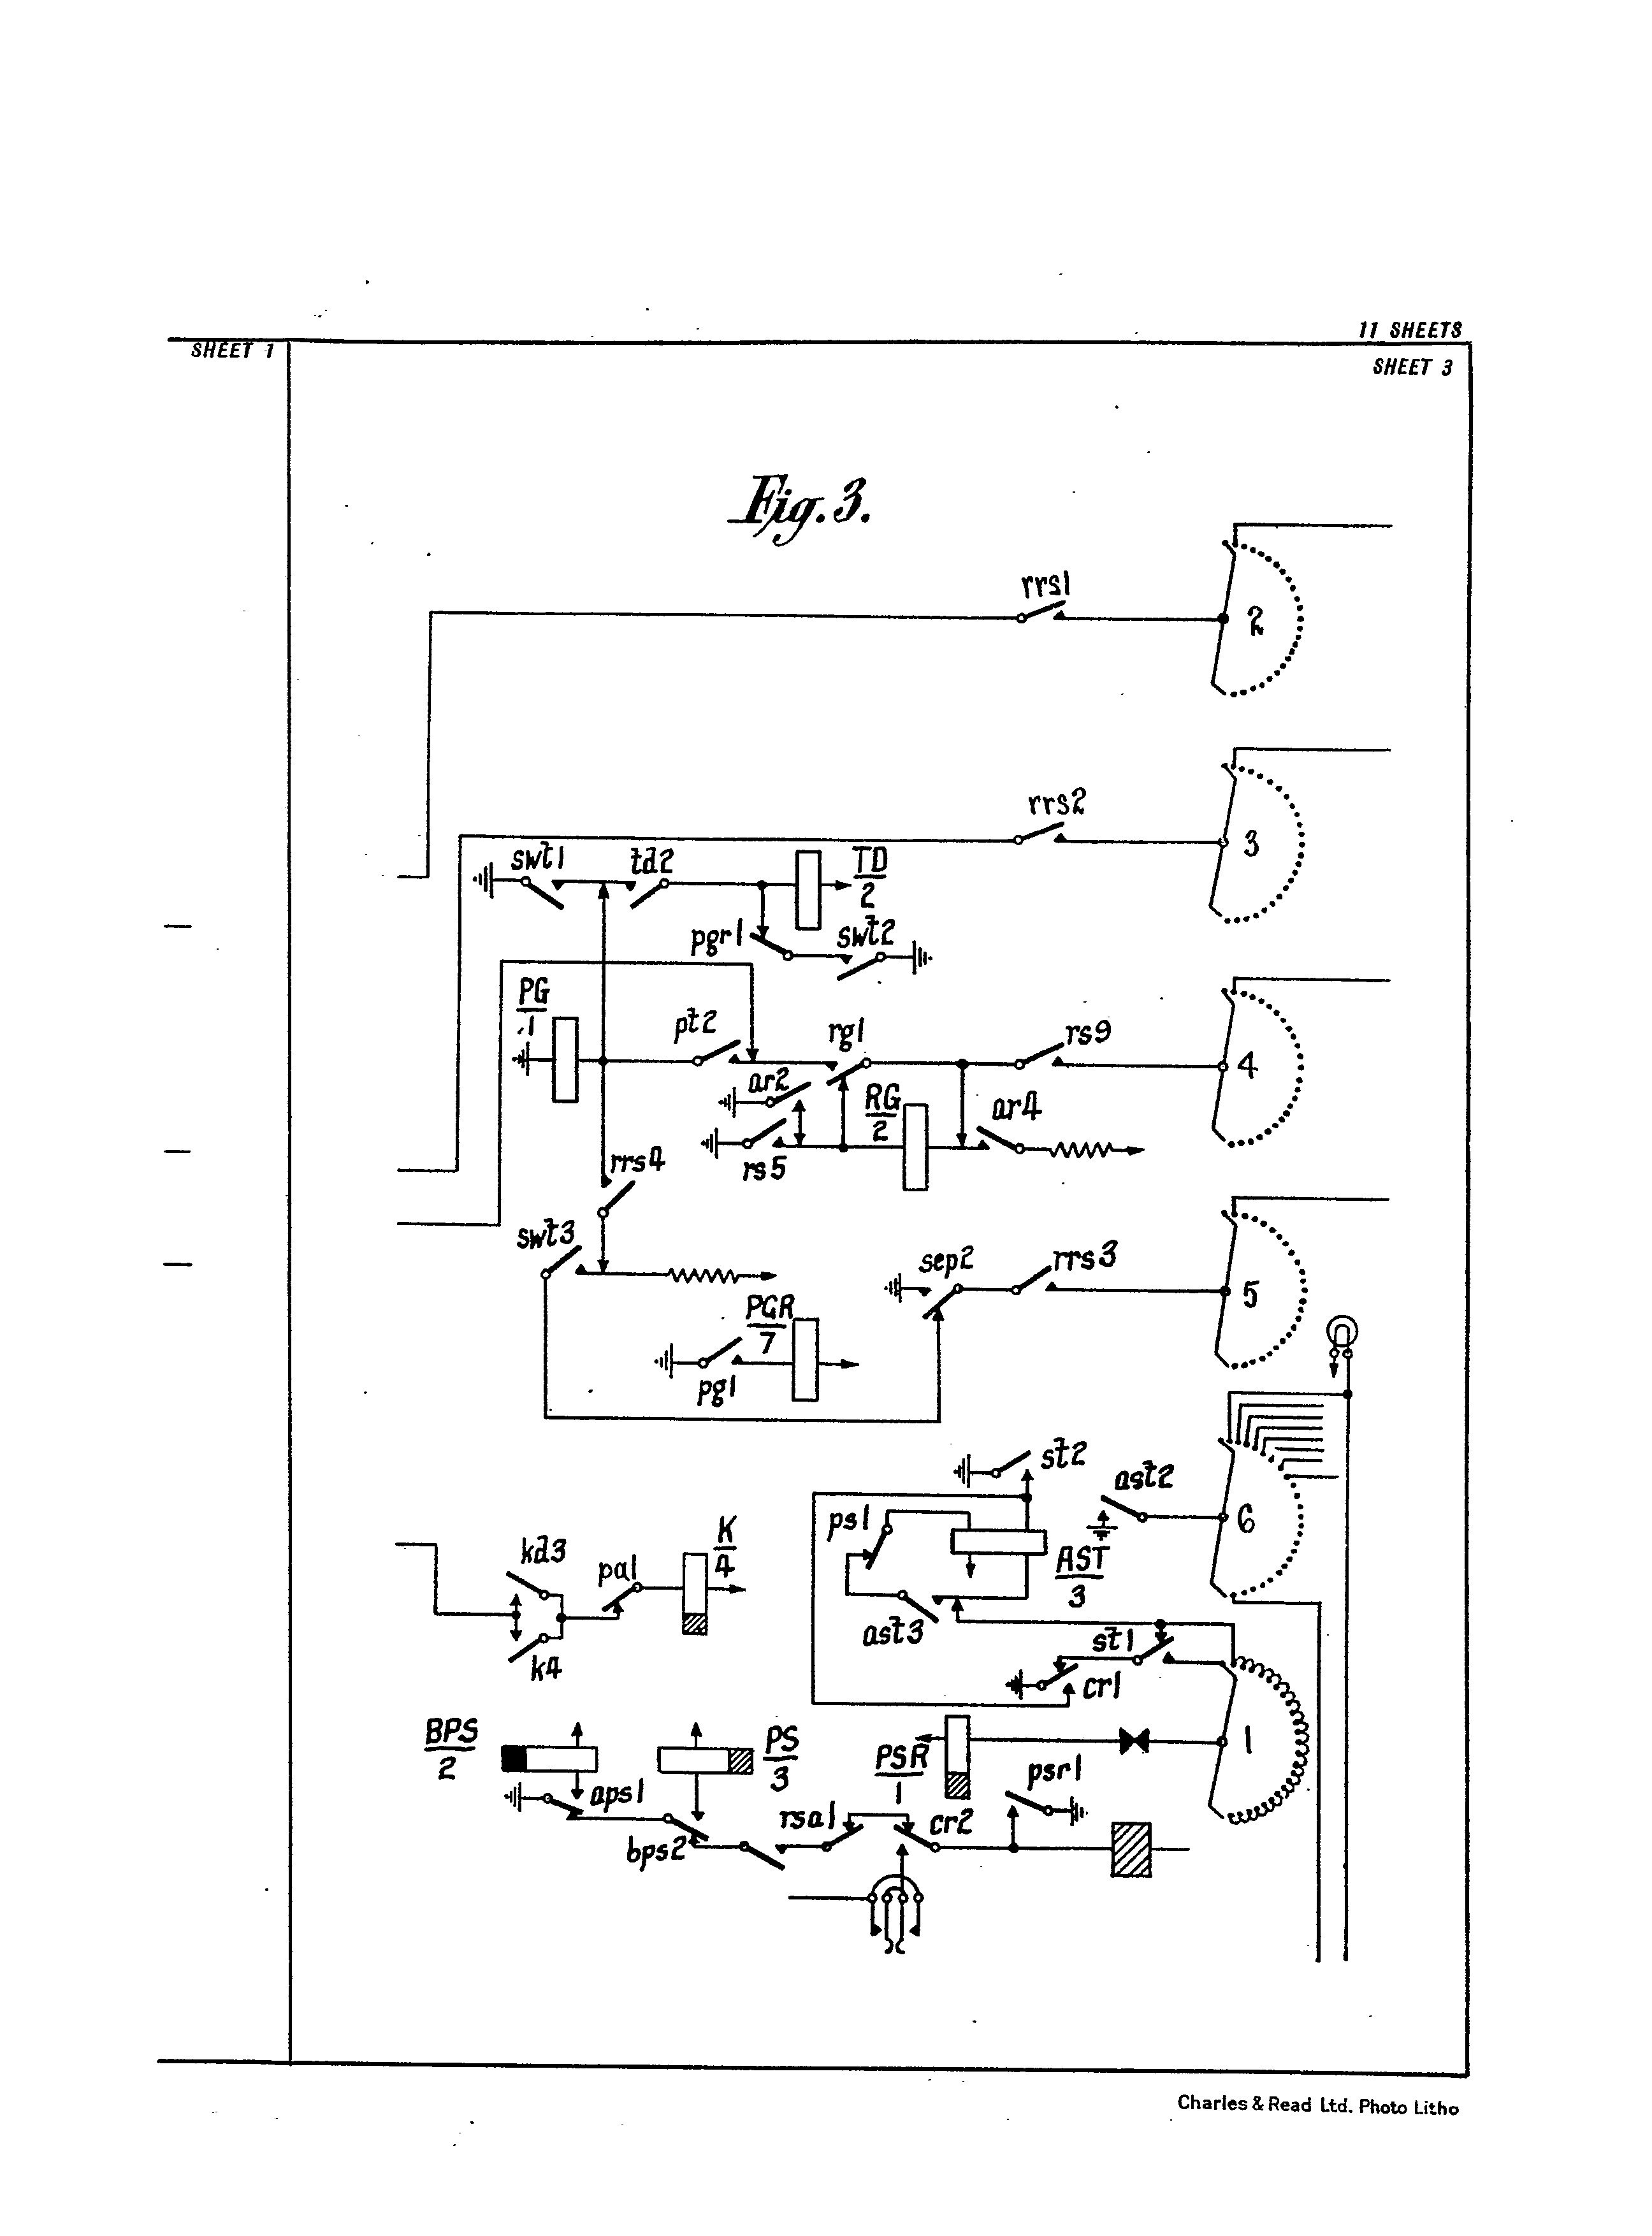 11 SHEETS
SHEET 1
SHEET 3
Fig. 3.
rrs1
2
rrs2
3
swt1
td2
TD
2
pgr1
swt2
PG
1
pt2
rg1
rs9
4
ar2
RG
2
ar4
rs5
rrs4
swt3
sep2
rrs3
5
PGR
7
pg1
st2
ast2
6
ps1
AST
3
kd3
pa1
K
4
k4
ast3
st1
cr1
1
BPS
2
PS
3
aps1
PSR
1
psr1
rsa1
cr2
bps2
Charles & Read Ltd. Photo Litho